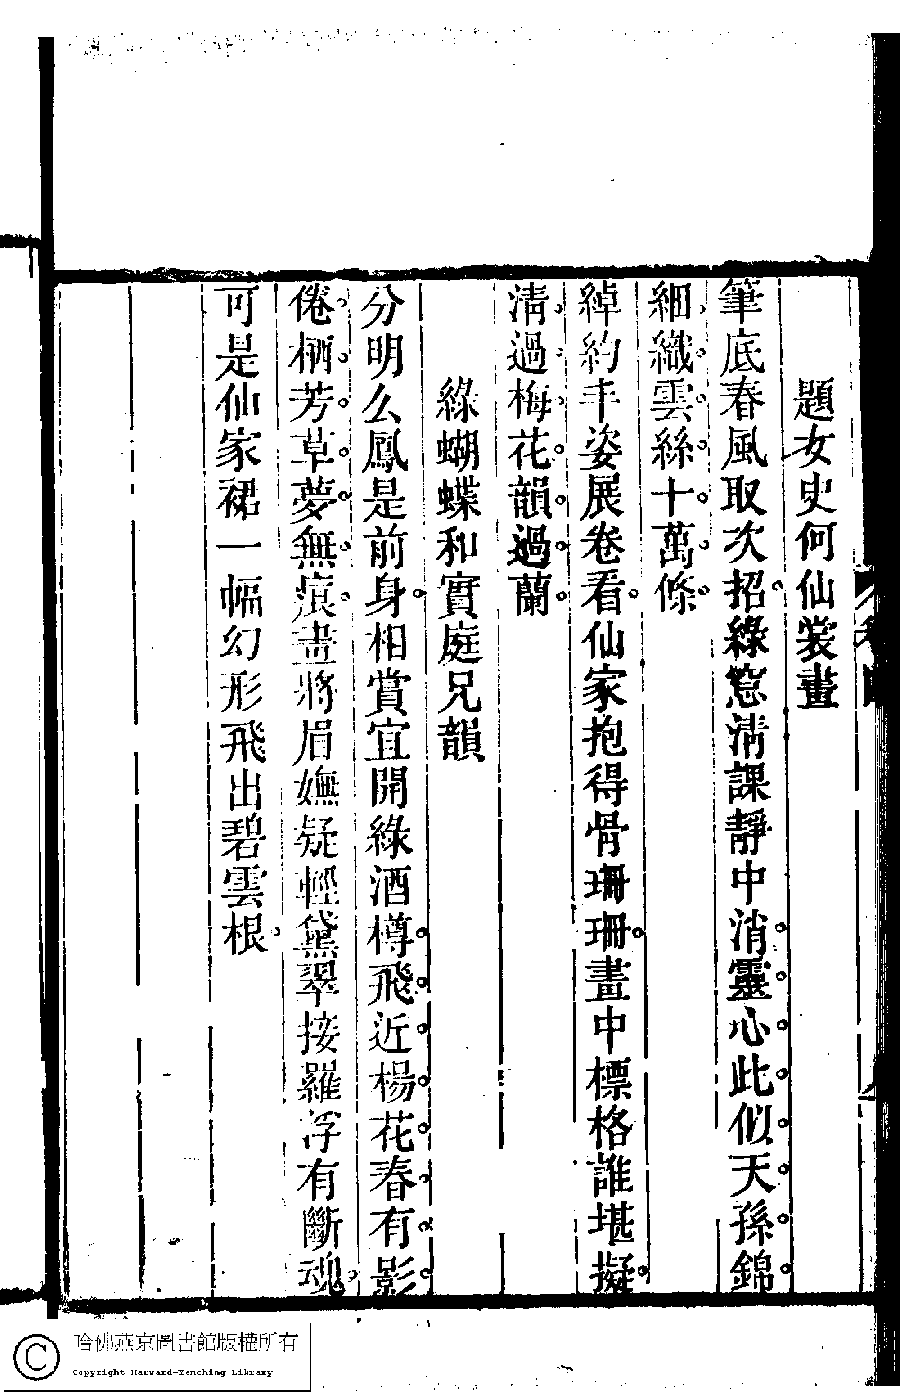 題女史何仙裳畫
筆底春風取次招綠窓淸課靜中消靈心此似天孫錦
細織雲絲十萬條
綽約丰姿展卷看仙家抱得骨珊珊畫中標格誰堪擬
淸過梅花韻過蘭
綠蝴蝶和實庭兄韻
分明么鳳是前身相賞宜開綠酒樽飛近楊花春有影
倦栖芳草夢無痕畫將眉嫵疑輕黛翠接羅浮有斷魂
可是仙家裙一幅幻形飛出碧雲根
哈佛燕京圖書館版權所有
Copyright Harvard-Yenching Library